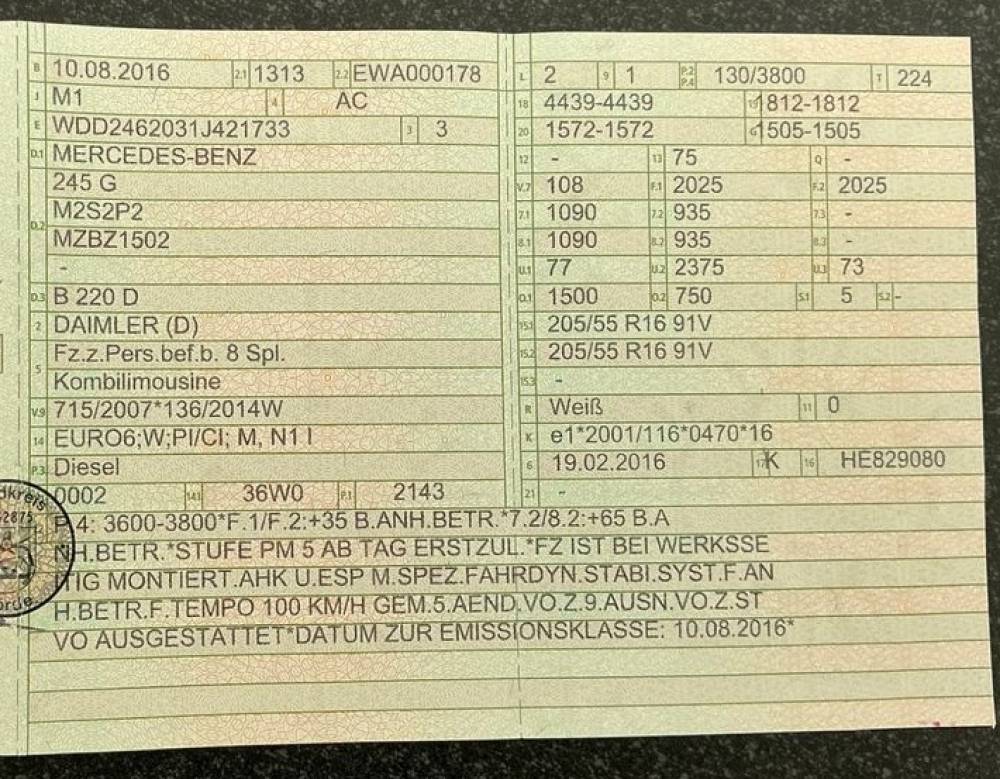 B 10.08.2016 2.1 1313 2.2 EWA000178
J M1 4 AC
E WDD2462031J421733 3 3
D.1 MERCEDES-BENZ
245 G
D.2 M2S2P2
MZBZ1502
-
D.3 B 220 D
2 DAIMLER (D)
5 Fz.z.Pers.bef.b. 8 Spl.
Kombilimousine
V.9 715/2007*136/2014W
14 EURO6;W;PI/CI; M, N1 I
P.3 Diesel
0002 14.1 36W0 P.1 2143
L 2 9 1 P.2 P.4 130/3800 T 224
18 4439-4439 19 1812-1812
20 1572-1572 G 1505-1505
12 - 13 75 Q -
V.7 108 F.1 2025 F.2 2025
7.1 1090 7.2 935 7.3 -
8.1 1090 8.2 935 8.3 -
U.1 77 U.2 2375 U.3 73
O.1 1500 O.2 750 S.1 5 S.2 -
15.1 205/55 R16 91V
15.2 205/55 R16 91V
15.3 -
R Weiß 11 0
K e1*2001/116*0470*16
6 19.02.2016 17 K 16 HE829080
21 -
P.4: 3600-3800*F.1/F.2:+35 B.ANH.BETR.*7.2/8.2:+65 B.A
NH.BETR.*STUFE PM 5 AB TAG ERSTZUL.*FZ IST BEI WERKSSE
ITIG MONTIERT.AHK U.ESP M.SPEZ.FAHRDYN.STABI.SYST.F.AN
H.BETR.F.TEMPO 100 KM/H GEM.5.AEND.VO.Z.9.AUSN.VO.Z.ST
VO AUSGESTATTET*DATUM ZUR EMISSIONSKLASSE: 10.08.2016*